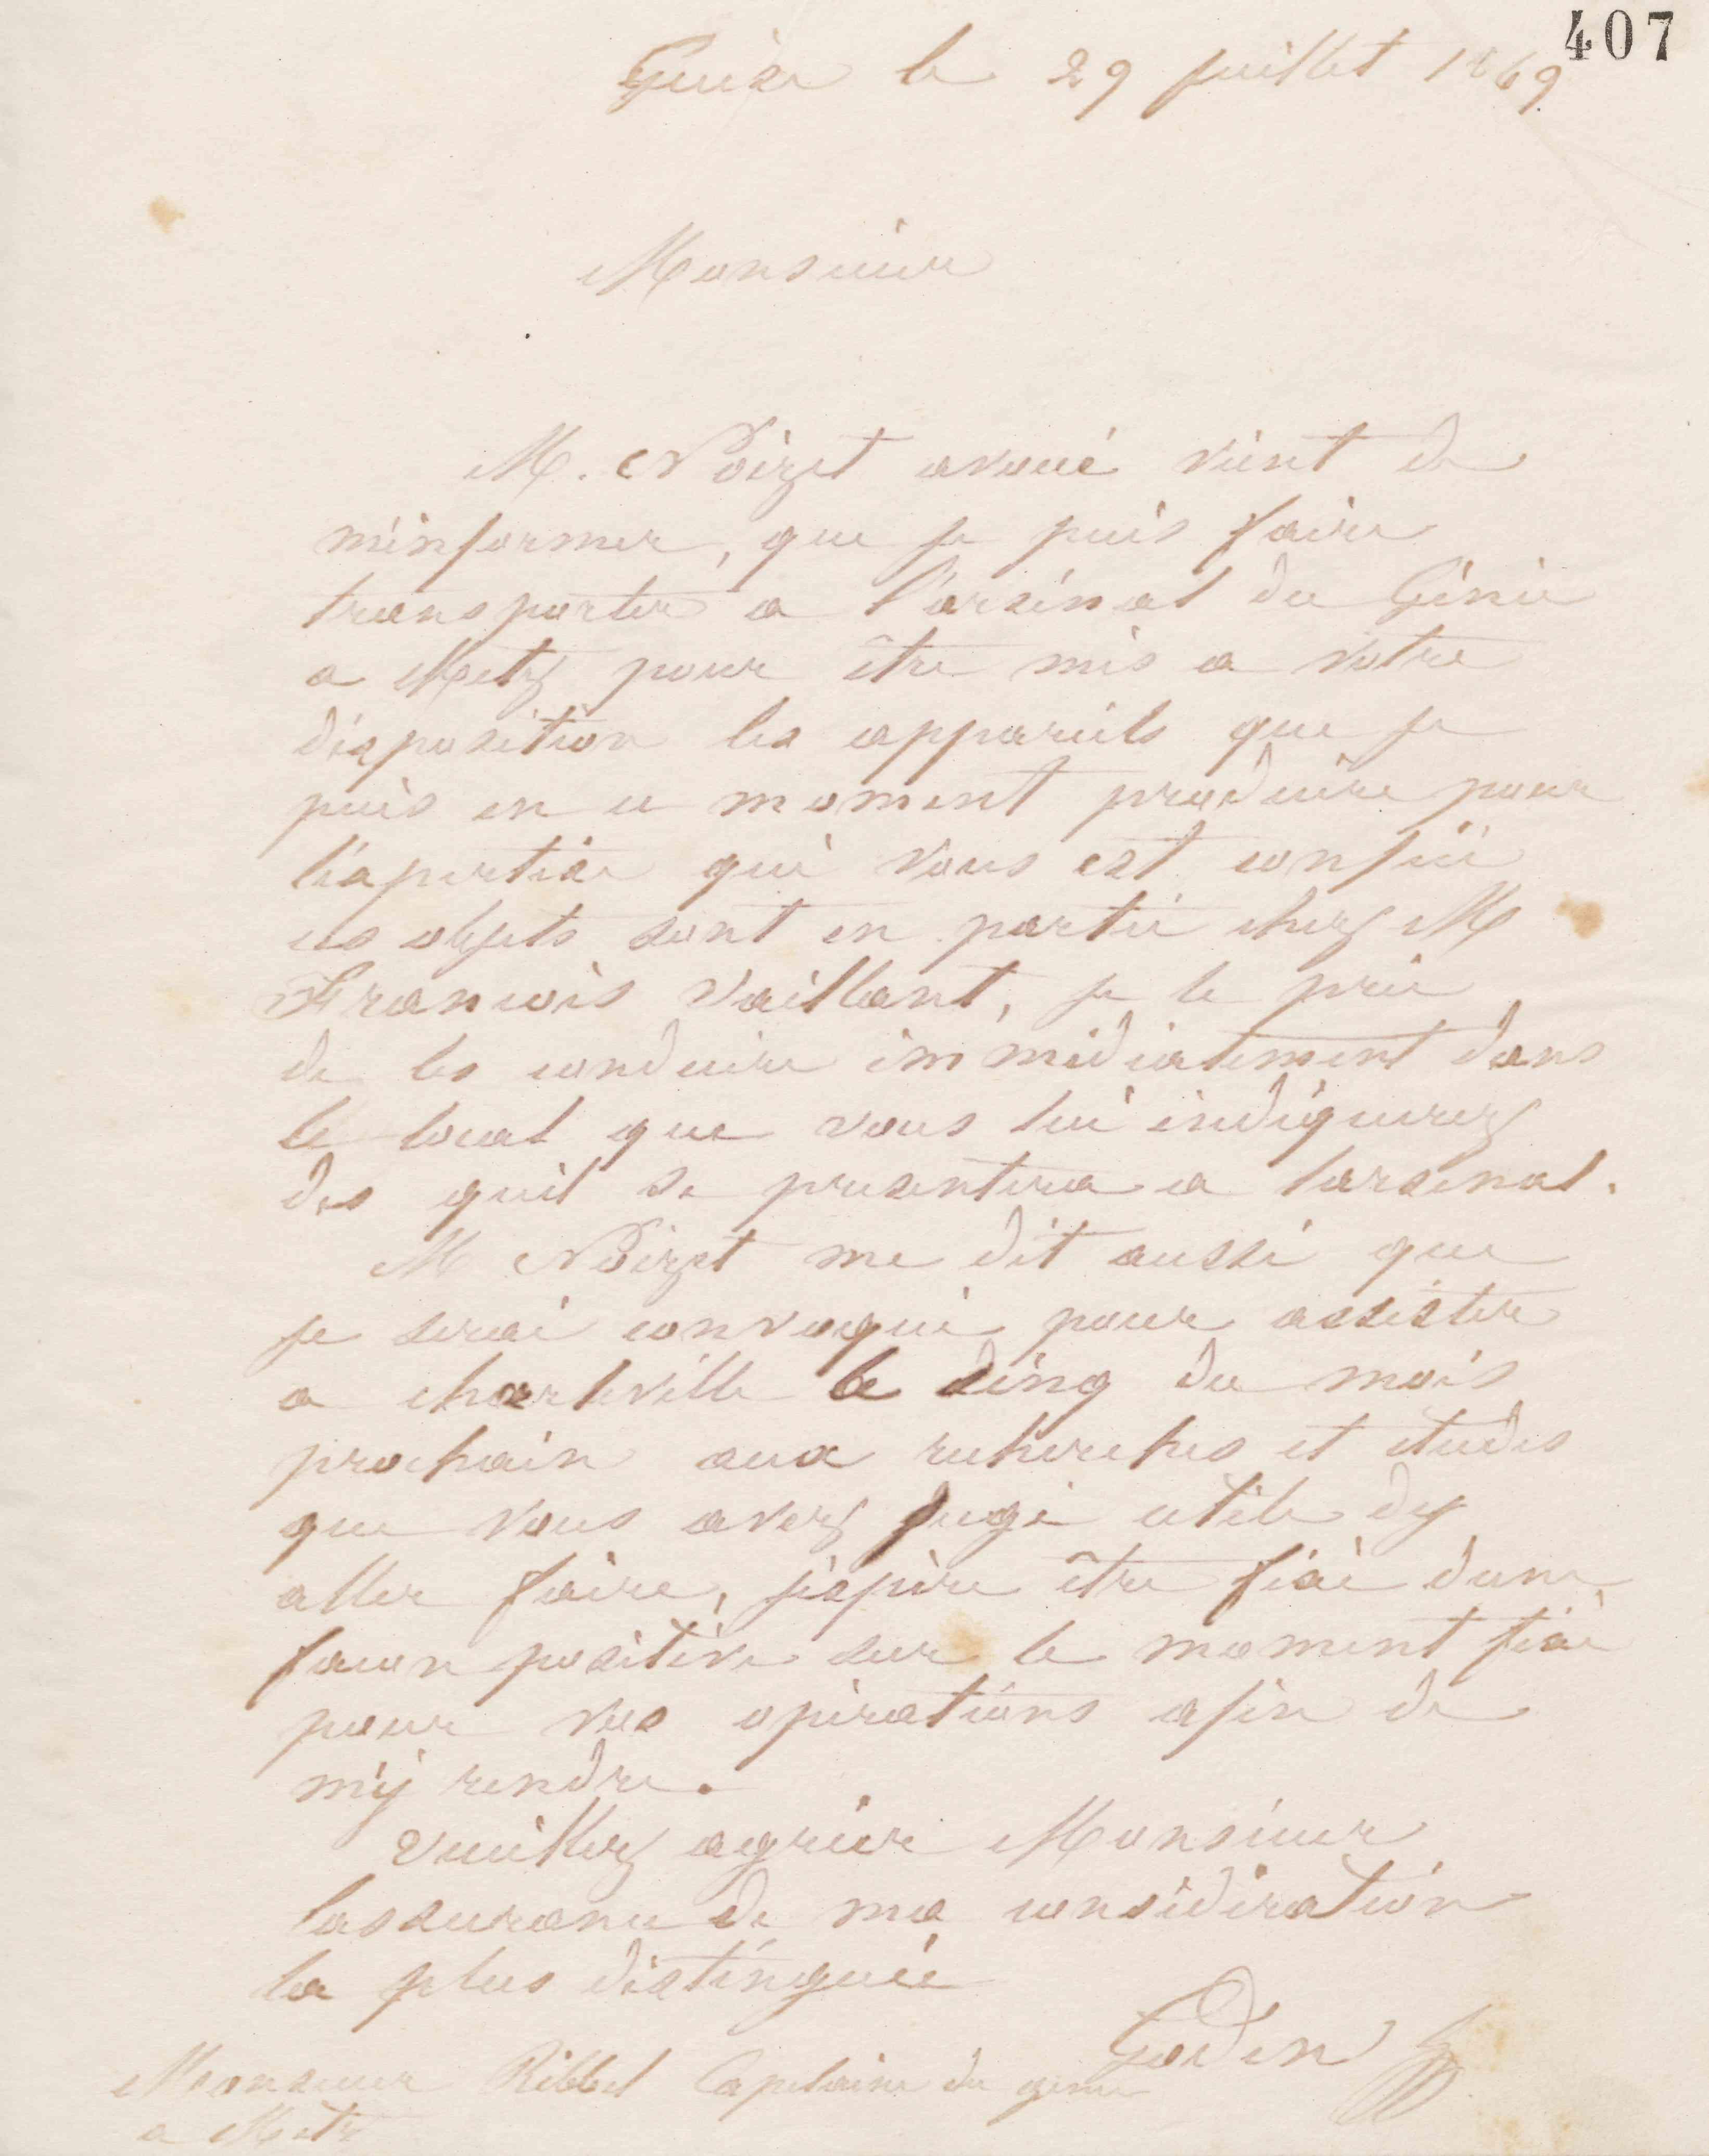 407
Guise le 29 juillet 1869
Monsieur
M. Noizet avoué vient de
m'informer, que je puis faire
transporter a l'arsénal du Génie
a Metz pour être mis a votre
disposition les appareils que je
puis en ce moment produire pour
l'éxpertise qui vous est confiée
ces objets sont en partie chez M
Francois Vaillant, je le prie
de les conduire immédiatement dans
le local que vous lui indiquerez
des quil se presentera a larsenal.
M Noizet me dit aussi que
je serai convoqué pour assister
a charleville le cinq du mois
prochain aux recherches et études
que vous avez jugé utile dy
aller faire, j'éspère être fixé dune
facon positive sur le moment fixé
pour vos opérations afin de
m'y rendre.
Veuillez agréer Monsieur
lassurance de ma considération
la plus distinguée
Godin
Monsieur Ribbel Capitaine du genie
a Metz